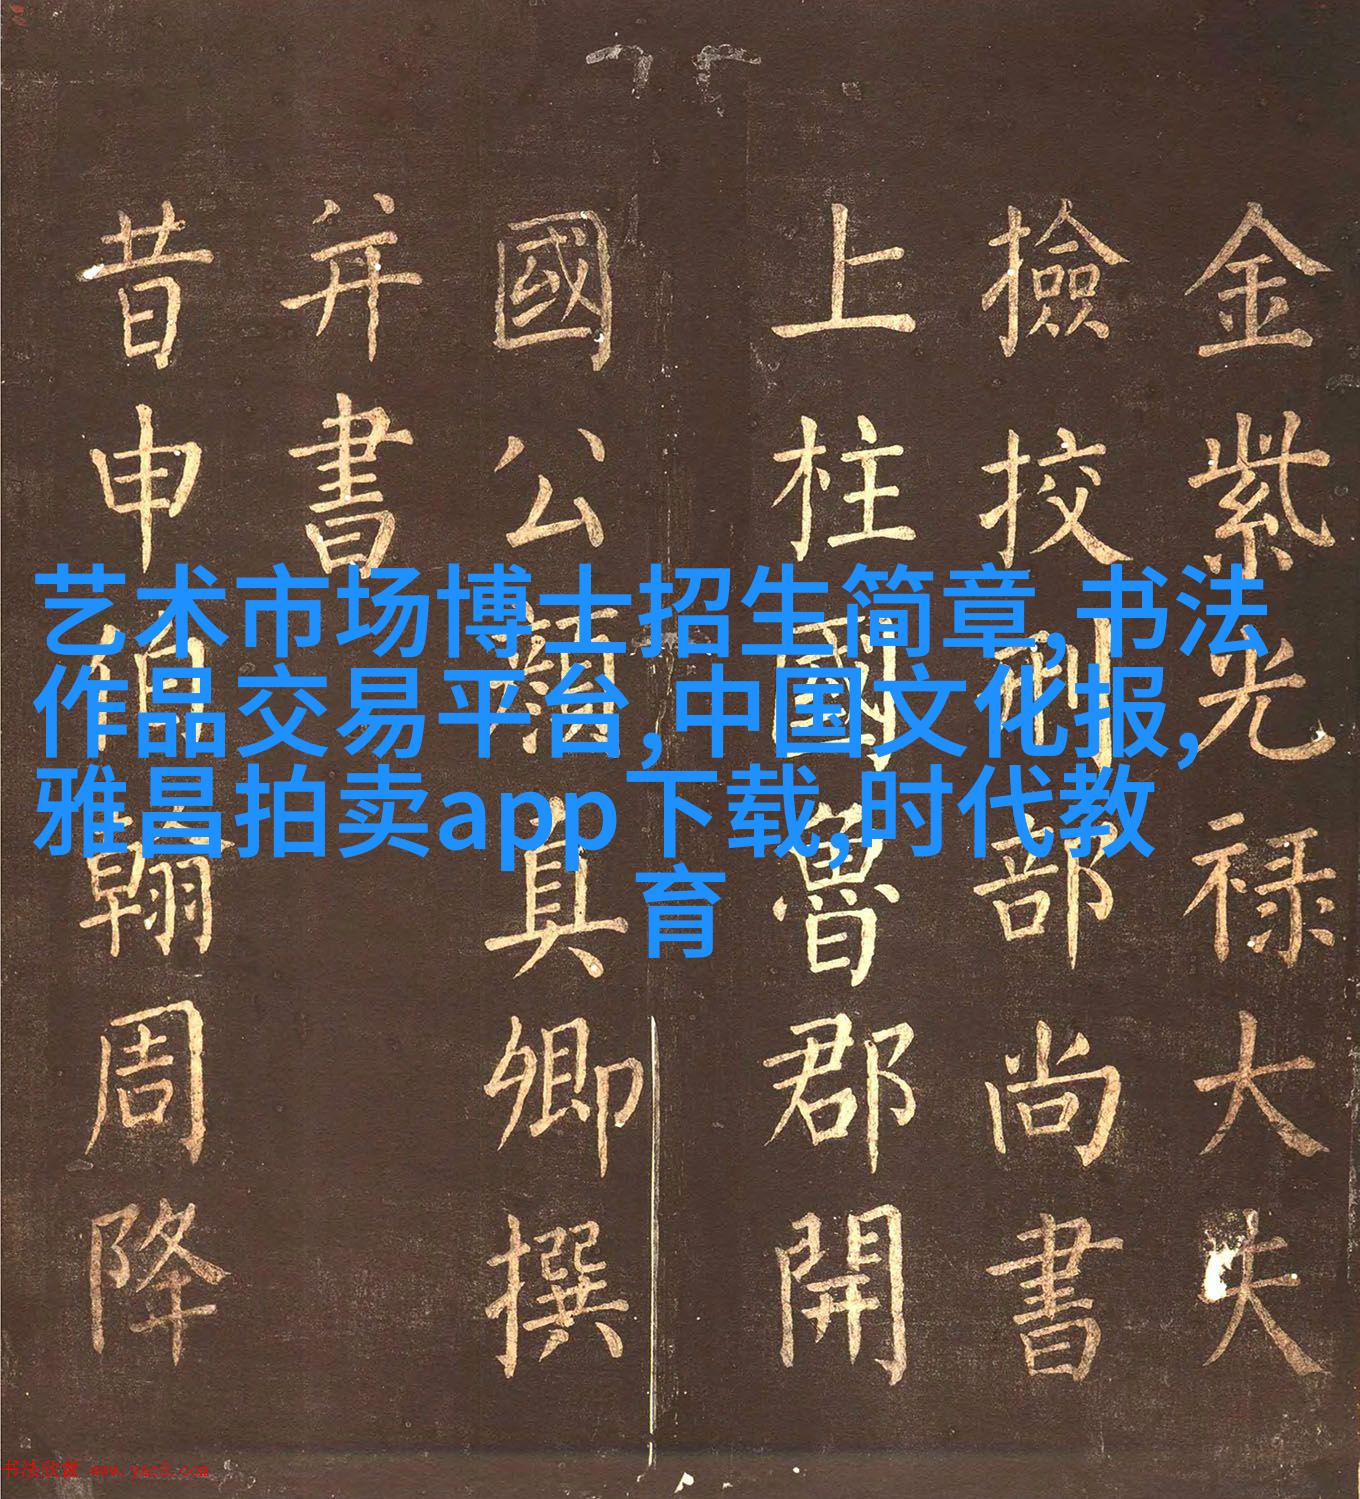 金紫光禄大夫
撿挍刑部尚書
上柱國魯郡開
國公顔真卿撰
并書
昔申伯翰周降
艺术市场博士招生简章,书法
作品交易平台,中国文化报,
雅昌拍卖app下载,时代教
育
书法欣赏 www.yac8.com